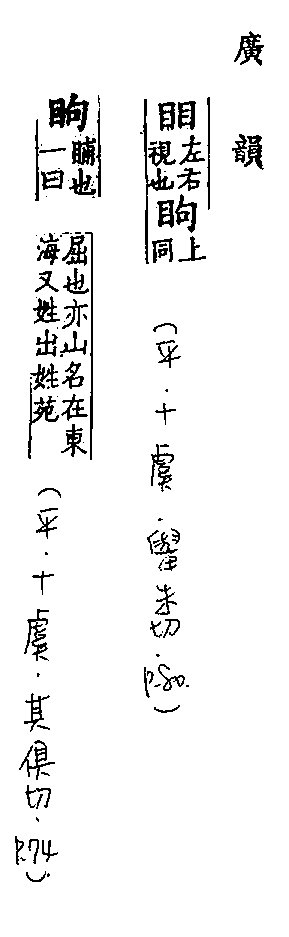 廣韻
䀠左右視也眗上同
(平.十虞.舉朱切.p.80.)
眗脯也一曰
屈也亦山名在東
海又姓出姓苑
(平.十虞.其俱切.p.74.)